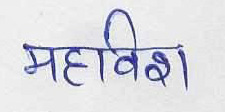 महाविश